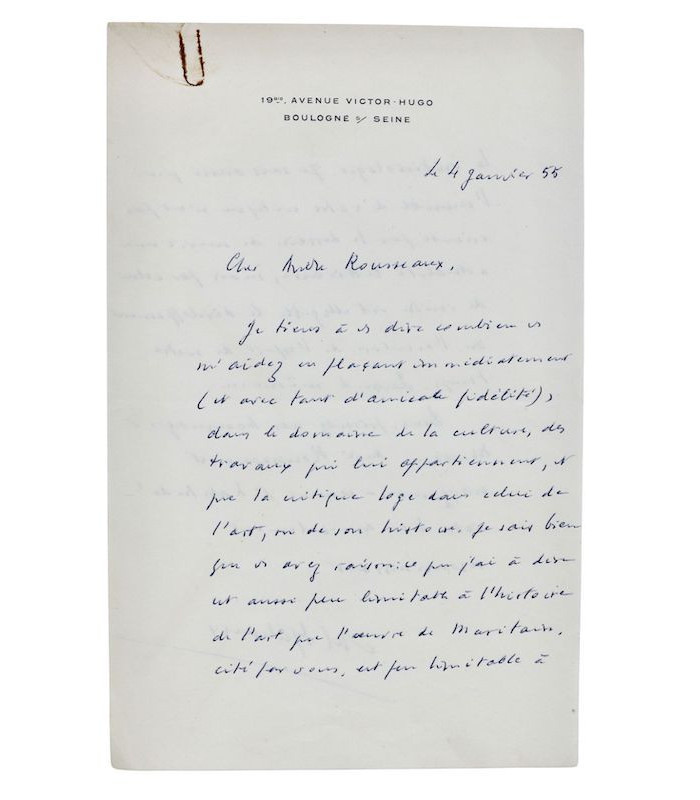 19BIS, AVENUE VICTOR-HUGO
BOULOGNE S/ SEINE
Le 4 Janvier 55
Cher André Rousseaux,
Je tiens à vs dire combien vs
m'aidez en plaçant immédiatement
(et avec tant d'amicale fidélité),
dans le domaine de la culture, des
travaux qui lui appartiennent, et
que la critique loge dans celui de
l'art, ou de son histoire. Je sais bien
que vs avez raison : ce que j'ai à dire
est aussi peu limitable à l'histoire
de l'art que l'œuvre de Maritain,
cité par vous, est peu limitable à